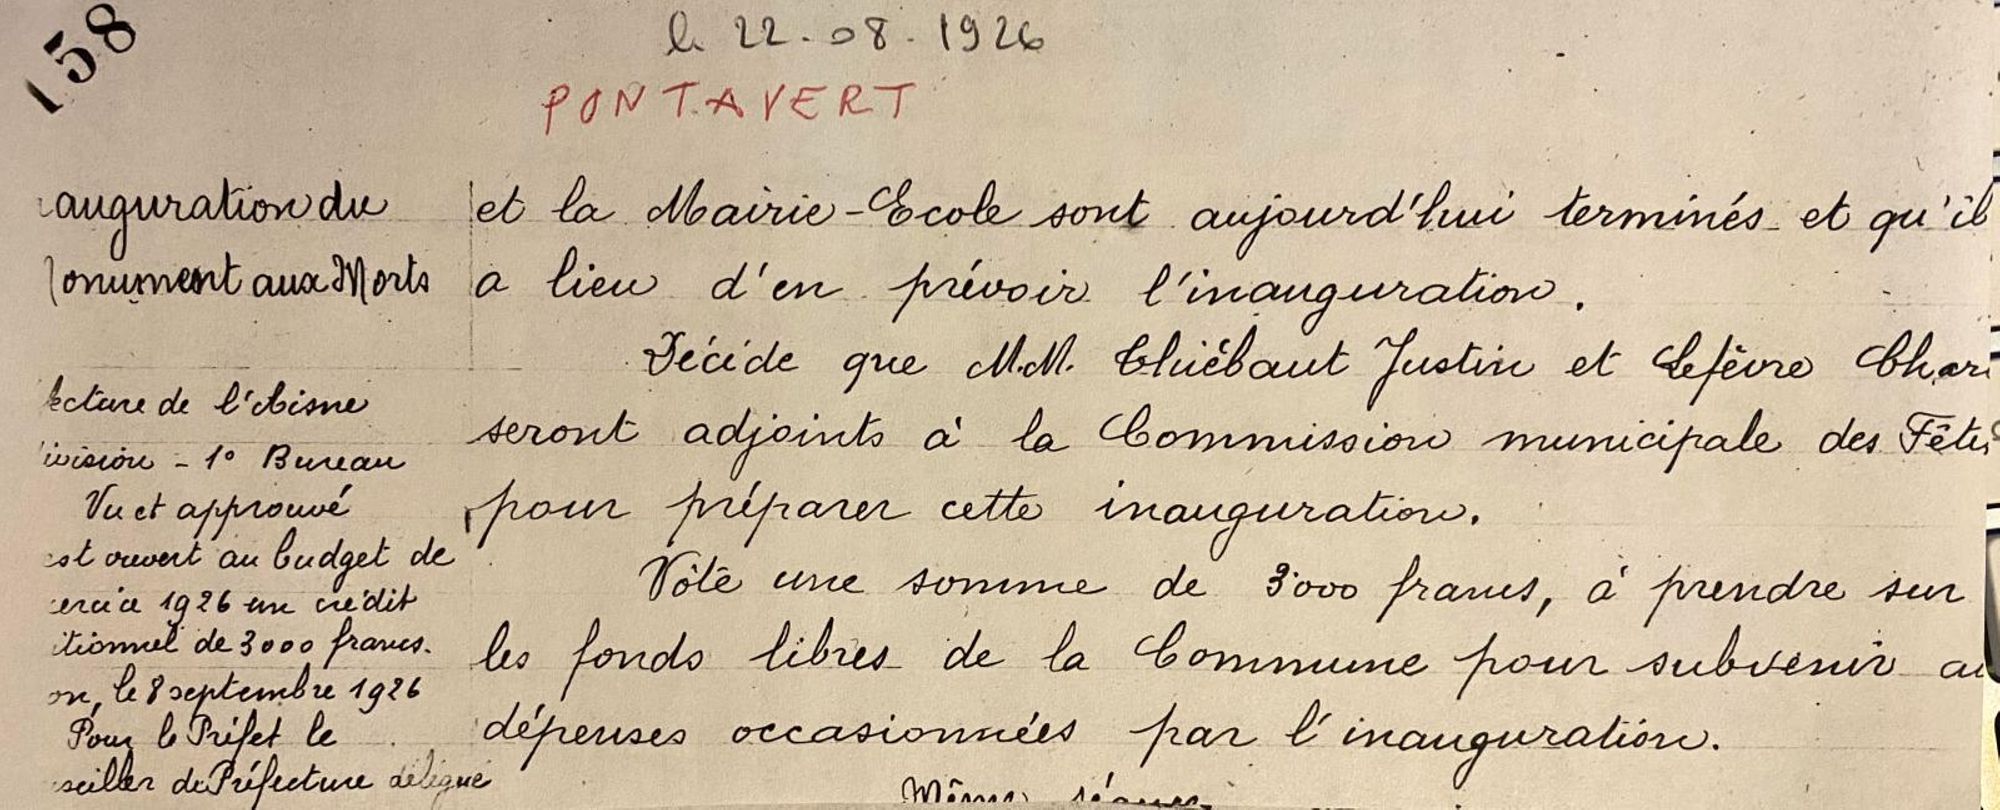 158
le 22-08-1926
PONTAVERT
auguration du
onument aux Morts
ecture de l'Aisne
ivision - 1° Bureau
Vu et approuvé
est ouvert au budget de
ercice 1926 un crédit
itionnel de 3000 francs.
on, le 8 septembre 1926
Pour le Préfet le
seiller de Préfecture délégué
et la Mairie-Ecole sont aujourd'hui terminés et qu'il
a lieu d'en prévoir l'inauguration.
Décide que M.M. Thiébaut Justin et Lefèvre Char
seront adjoints à la Commission municipale des Fêtes
pour préparer cette inauguration.
Vote une somme de 3000 francs, à prendre sur
les fonds libres de la Commune pour subvenir au
dépenses occasionnées par l'inauguration.
Même séance